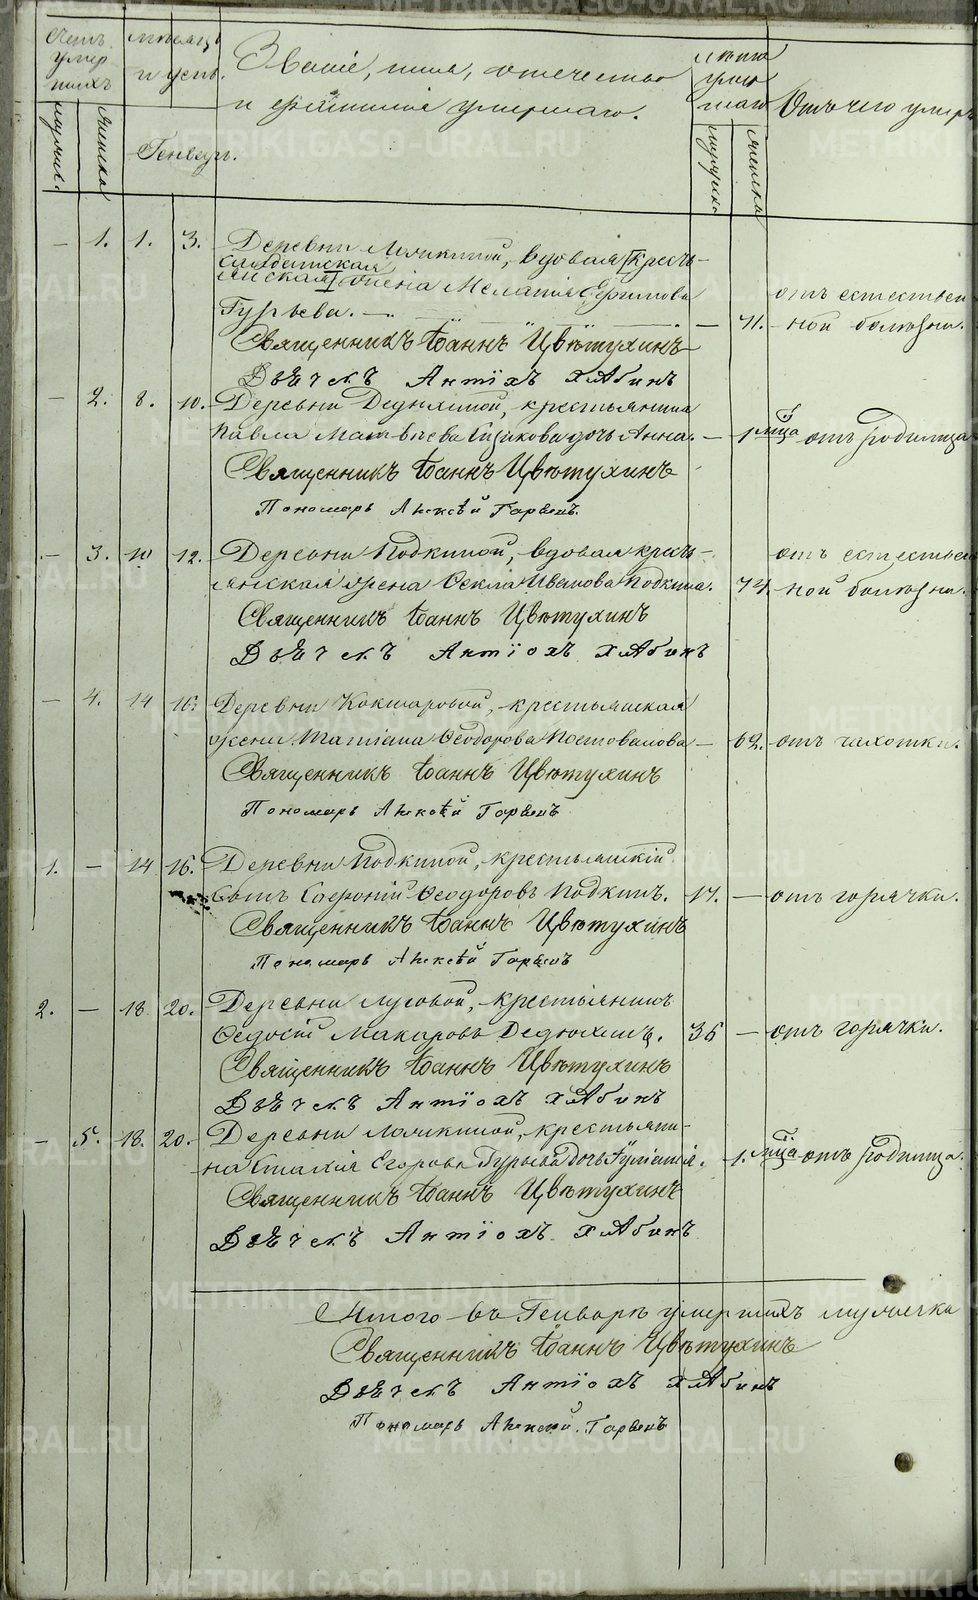 Счетъ умер шихъ
мѣсяцъ и день.
Званіе, имя, отечество
и фамилія умершаго.
лѣта умер шаго
Отъ чего умеръ
мужска.
женска
Генварь.
мужска
женска
— 1. 1. 3. Деревни Лямкиной, вдовая кресть-
солдатская
янская жена Меланія Ефимова отъ естествен
Гурьева. — — 71. ной болѣзни.
Священникъ Іоаннъ Цвѣтухинъ
Дьячекъ Антіохъ Хлабинъ
— 2. 8. 10. Деревни Дедюхиной, крестьянина
Павла Матвѣева дочь Анна. — 1 мца отъ родимца
Священникъ Іоаннъ Цвѣтухинъ
Пономарь Алексѣй
— 3. 10 12. Деревни Подкиной, вдовая кресть- отъ естествен
янская жена Ѳекла Иванова Подкина. 74. ной болѣзни.
Священникъ Іоаннъ Цвѣтухинъ
Дьячекъ Антіохъ Хлабинъ
— 4. 14 16. Деревни Кокшаровой, крестьянская
жена Татіана Ѳеодорова Постовалова — 62. отъ чахотки.
Священникъ Іоаннъ Цвѣтухинъ
Пономарь Алексѣй
1. — 14 16. Деревни Подкиной, крестьянскій
сынъ Ѳеодоровъ Подкинъ. 17. — отъ горячки.
Священникъ Іоаннъ Цвѣтухинъ
Пономарь Алексѣй
2. — 18 20. Деревни Луговой, крестьянинъ
Ѳедосій Макаровъ Дедюхинъ. 36 — отъ горячки.
Священникъ Іоаннъ Цвѣтухинъ
Дьячекъ Антіохъ Хлабинъ
— 5. 18. 20. Деревни Лямкиной, крестьяни-
на Егорова Гурьева дочь 1. мца отъ родимца.
Священникъ Іоаннъ Цвѣтухинъ
Дьячекъ Антіохъ Хлабинъ
Итого въ Генварѣ умершихъ мужеска
Священникъ Іоаннъ Цвѣтухинъ
Дьячекъ Антіохъ Хлабинъ
Пономарь Алексѣй
METRIKI.GASO-URAL.RU